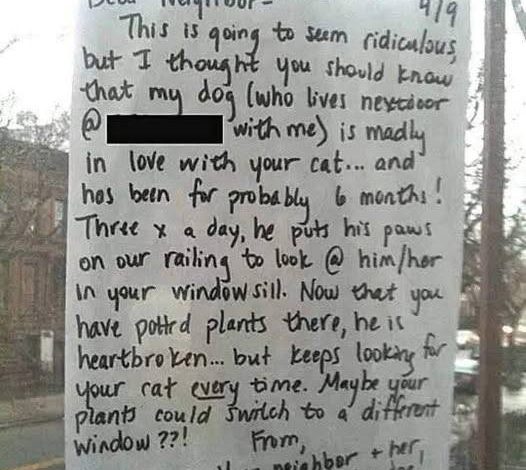 Dear Neighbor- 4/9
This is going to seem ridiculous,
but I thought you should know
that my dog (who lives nextdoor
@ with me) is madly
in love with your cat... and
has been for probably 6 months!
Three x a day, he puts his paws
on our railing to look @ him/her
in your windowsill. Now that you
have potted plants there, he is
heartbroken... but keeps looking for
your cat every time. Maybe your
plants could switch to a different
window??! From,
neighbor + her,